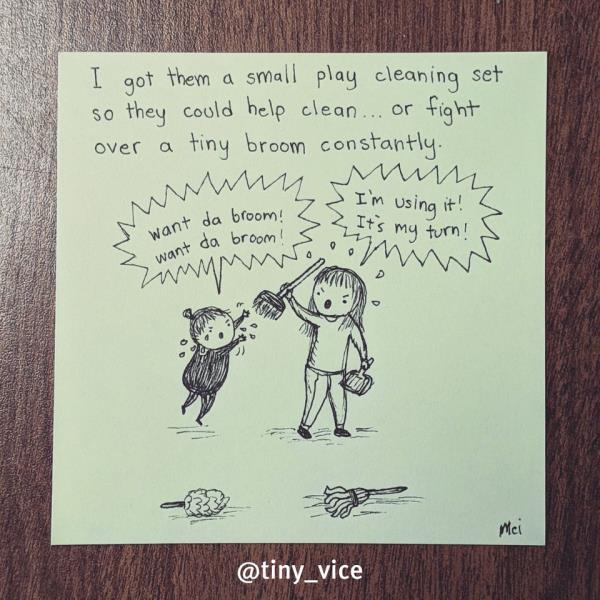 I got them a small play cleaning set
so they could help clean... or fight
over a tiny broom constantly.
want da broom!
want da broom!
I'm using it!
It's my turn!
Mei
@tiny_vice